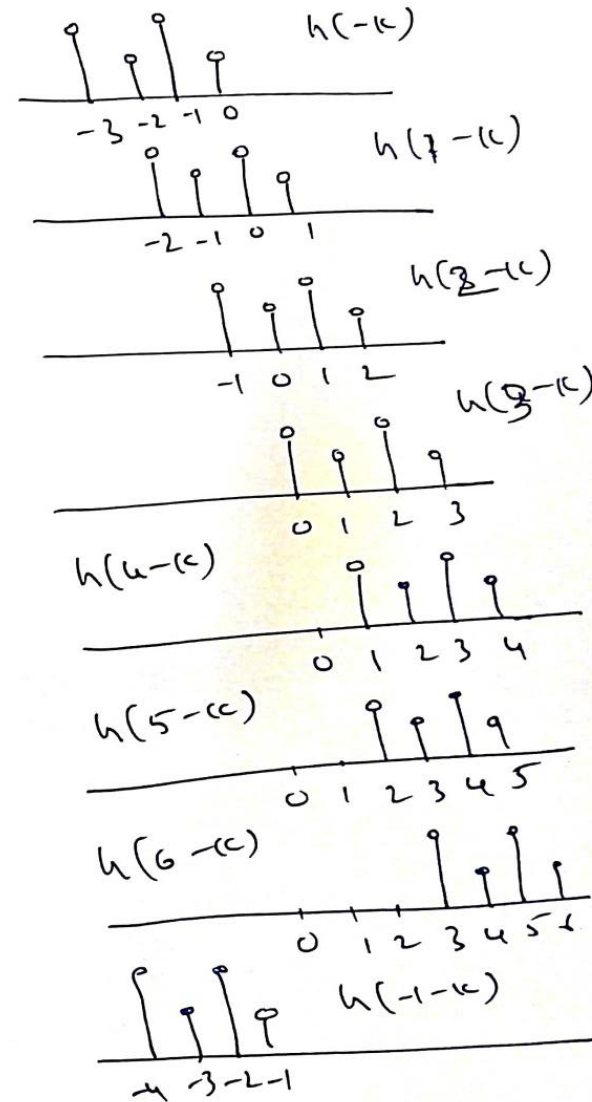 h(-k)
-3 -2 -1 0
h(1-k)
-2 -1 0 1
h(2-k)
-1 0 1 2
h(3-k)
0 1 2 3
h(4-k)
0 1 2 3 4
h(5-k)
0 1 2 3 4 5
h(6-k)
0 1 2 3 4 5 6
h(-1-k)
-4 -3 -2 -1